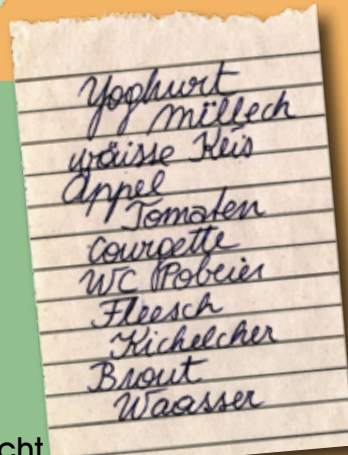 Yoghurt
Mëllech
wäisse Kéis
Äppel
Tomaten
Courgette
WC Pobeier
Fleesch
Kichelcher
Brout
Waasser
cht